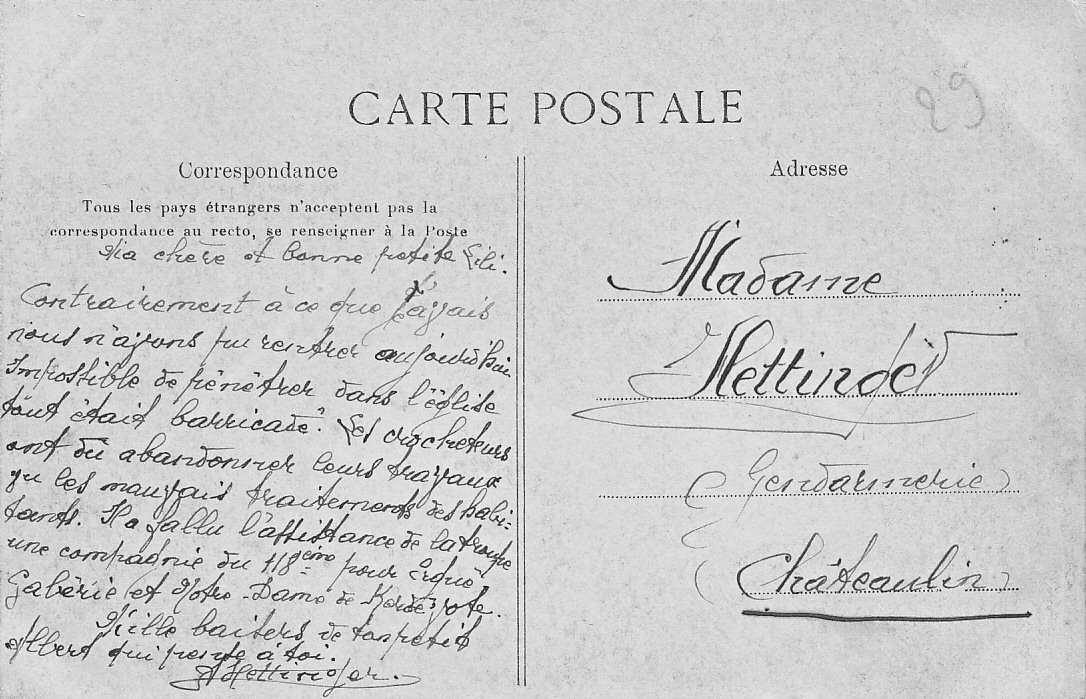 CARTE POSTALE
29
Correspondance
Tous les pays étrangers n'acceptent pas la
correspondance au recto, se renseigner à la Poste
Ma chère et bonne petite Lili.
Contrairement à ce que j'avais
nous n'avons pu rentrer aujourd'hui
Impossible de pénétrer dans l'église
tout était barricadé. Les crocheteurs
ont du abandonner leurs travaux
vu les mauvais traitements des habi=
tants. Il a fallu l'assistance de la troupe
une compagnie du 118eme pour Ergué-
Gabéric et Notre-Dame de Kerdévote.
Mille baisers de ton petit
Albert qui pense à toi.
A Hettinger.
Adresse
Madame
Gendarmerie
Châteaulin